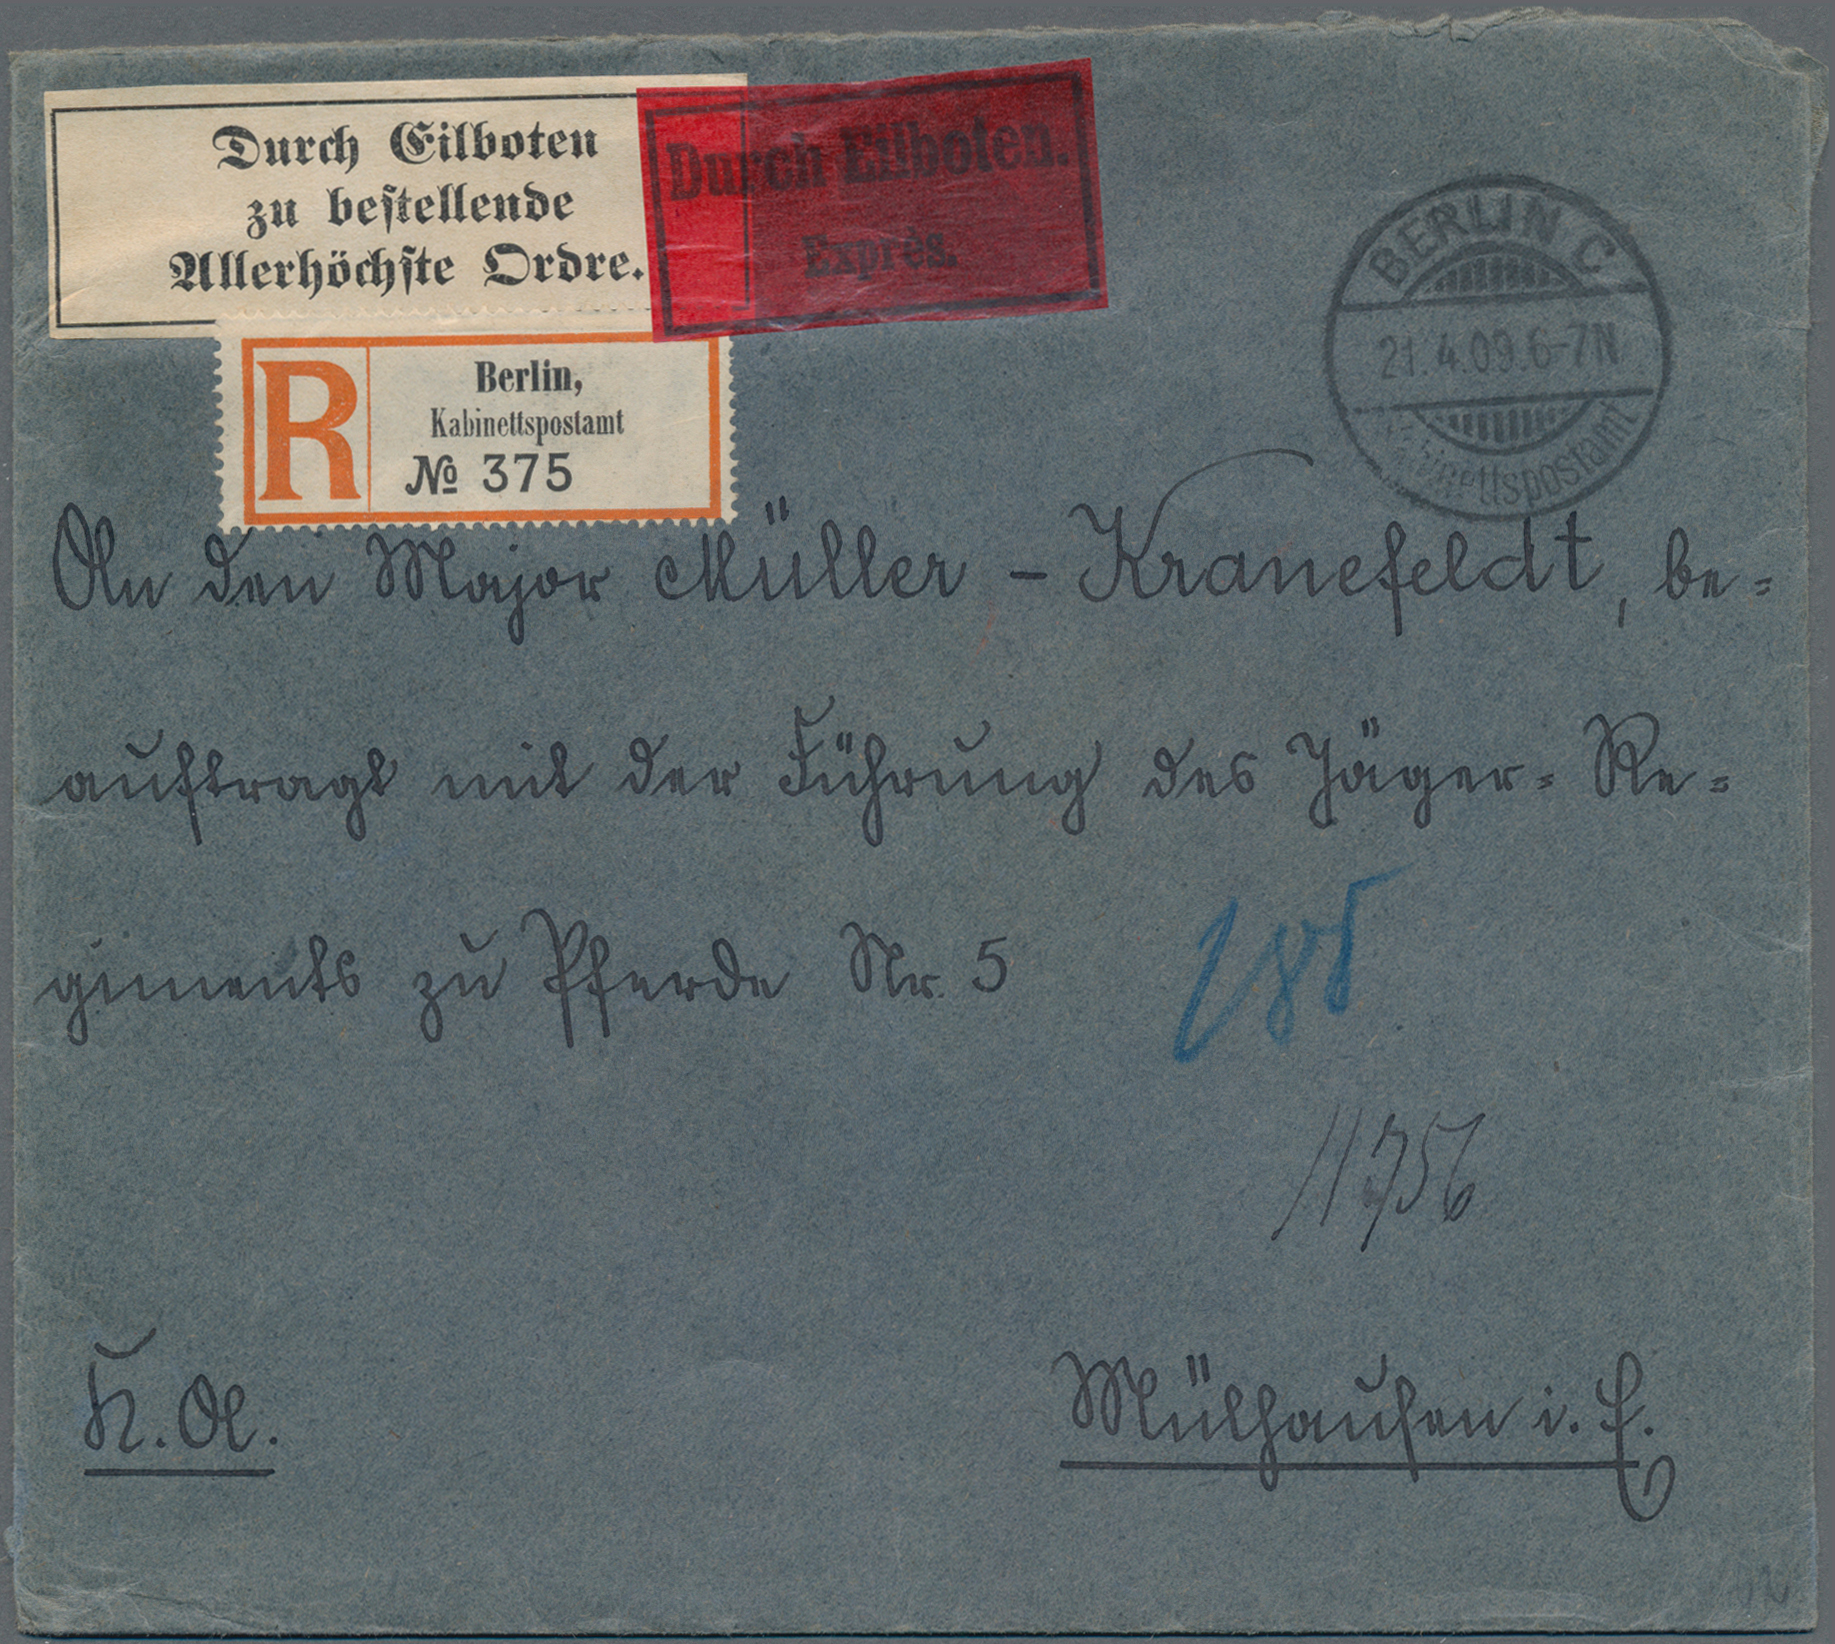 Durch Eilboten
zu bestellende
Allerhöchste Ordre.
Durch Eilboten.
Exprès.
R
Berlin,
Kabinettspostamt
№ 375
BERLIN C
21.4.09.6-7N
Kabinettspostamt
An den Major Müller - Kranefeldt, be=
auftragt mit der Führung des Jäger= Re=
giments zu Pferde Nr. 5
11756
K. A.
Mülhausen i. E.